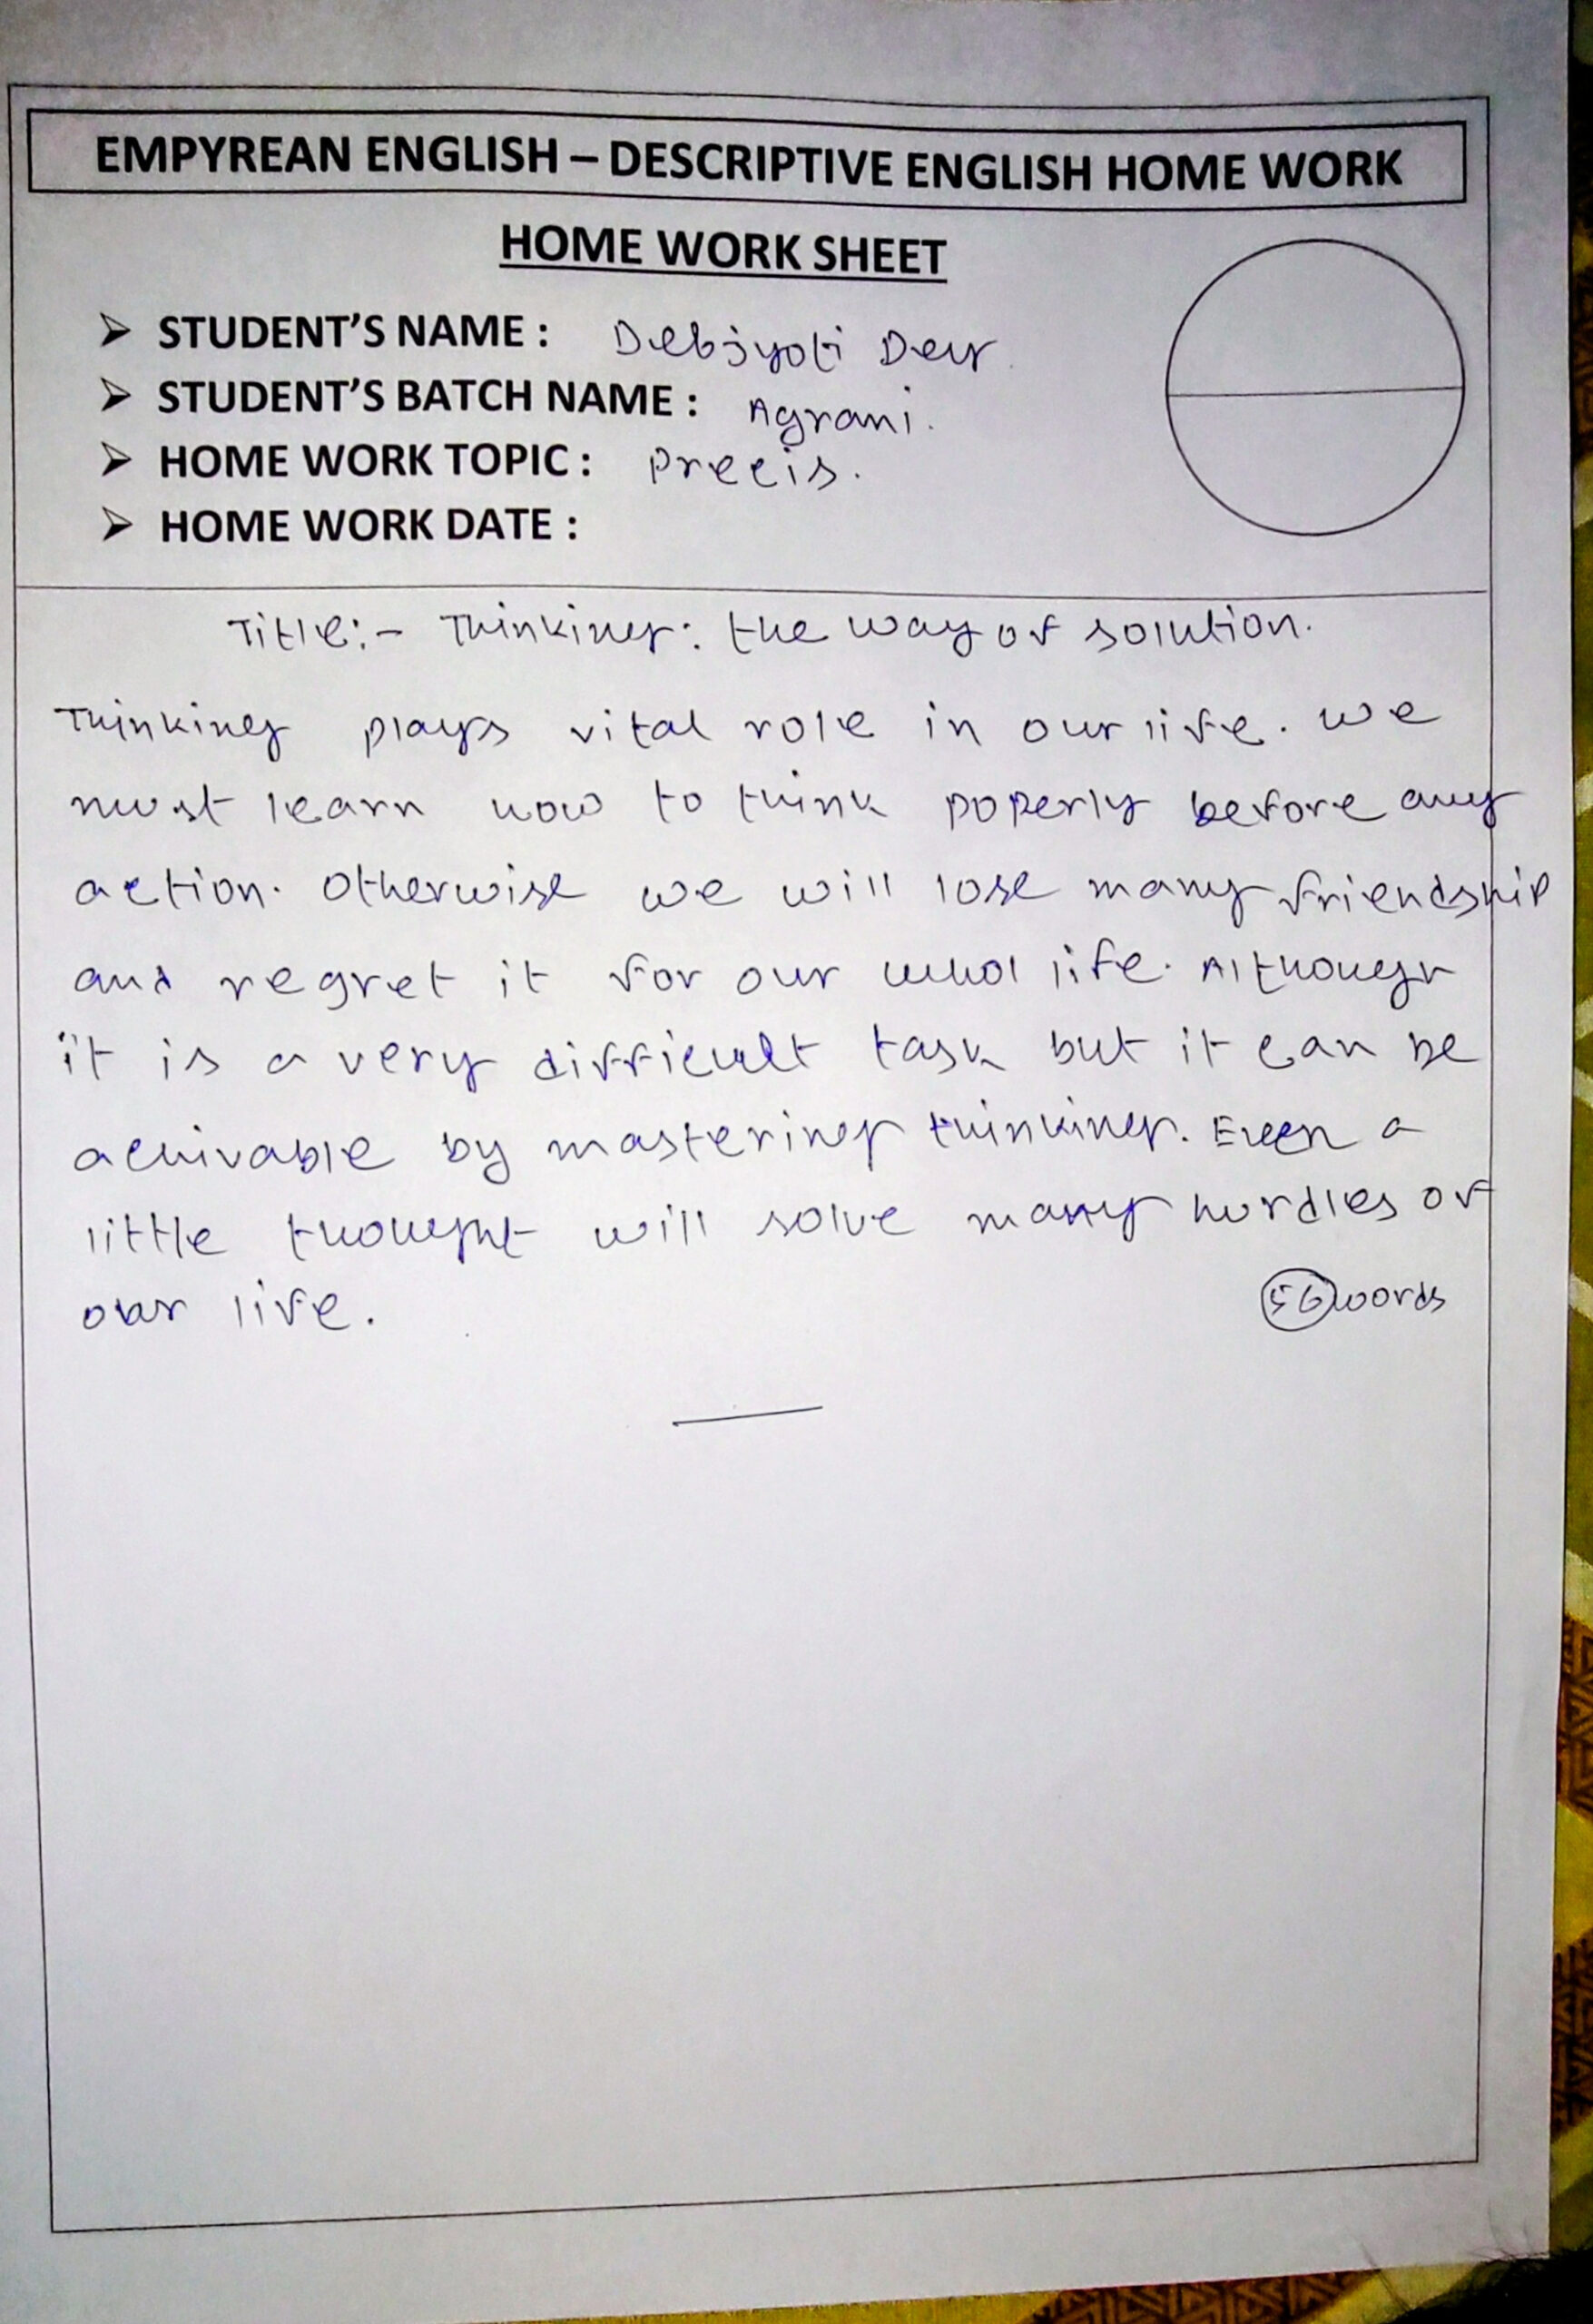 EMPYREAN ENGLISH – DESCRIPTIVE ENGLISH HOME WORK
HOME WORK SHEET
➢ STUDENT'S NAME : Debjyoti Dey
➢ STUDENT'S BATCH NAME : Agrani.
➢ HOME WORK TOPIC : Precis.
➢ HOME WORK DATE :
Title:- Thinking: the way of solution.
Thinking plays vital role in our life. We
must learn how to think poperly before any
action. Otherwise we will lose many friendship
and regret it for our whol life. Although
it is a very difficult task but it can be
achivable by mastering thinking. Even a
little thought will solve many hurdles of
our life.
56 words